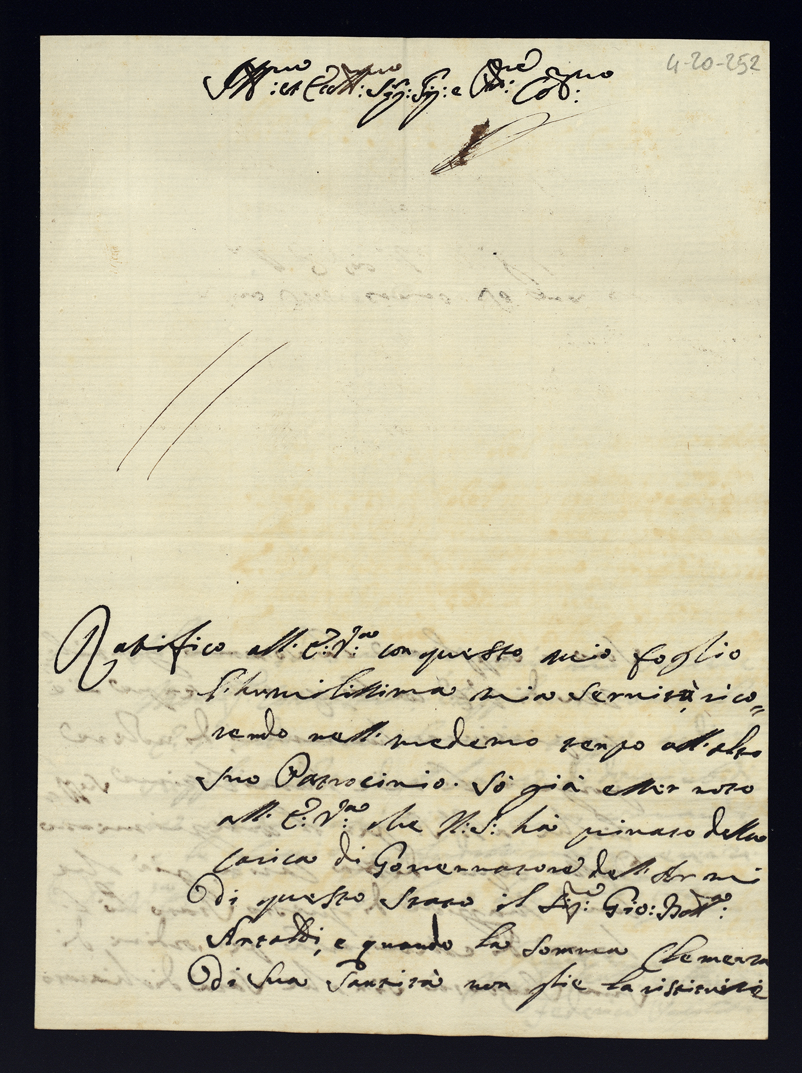 4-20-252
Ill:mo et Ecc:mo Sig: Sig: e Pne: Col:mo
Ratifico all' E: V:ra con questo mio foglio
l'humilissima mia servitù, rico=
rendo nell' medemo tempo all' alto
suo Patrocinio. Sò già esser noto
all' E: V:ra che N: S: hà privato della
carica di Governatore dell' Armi
di questo Stato il Sig:re Gio: Batta:
Antaldi, e quando la somma Clemenza
di Sua Santità non glie la ristituisse